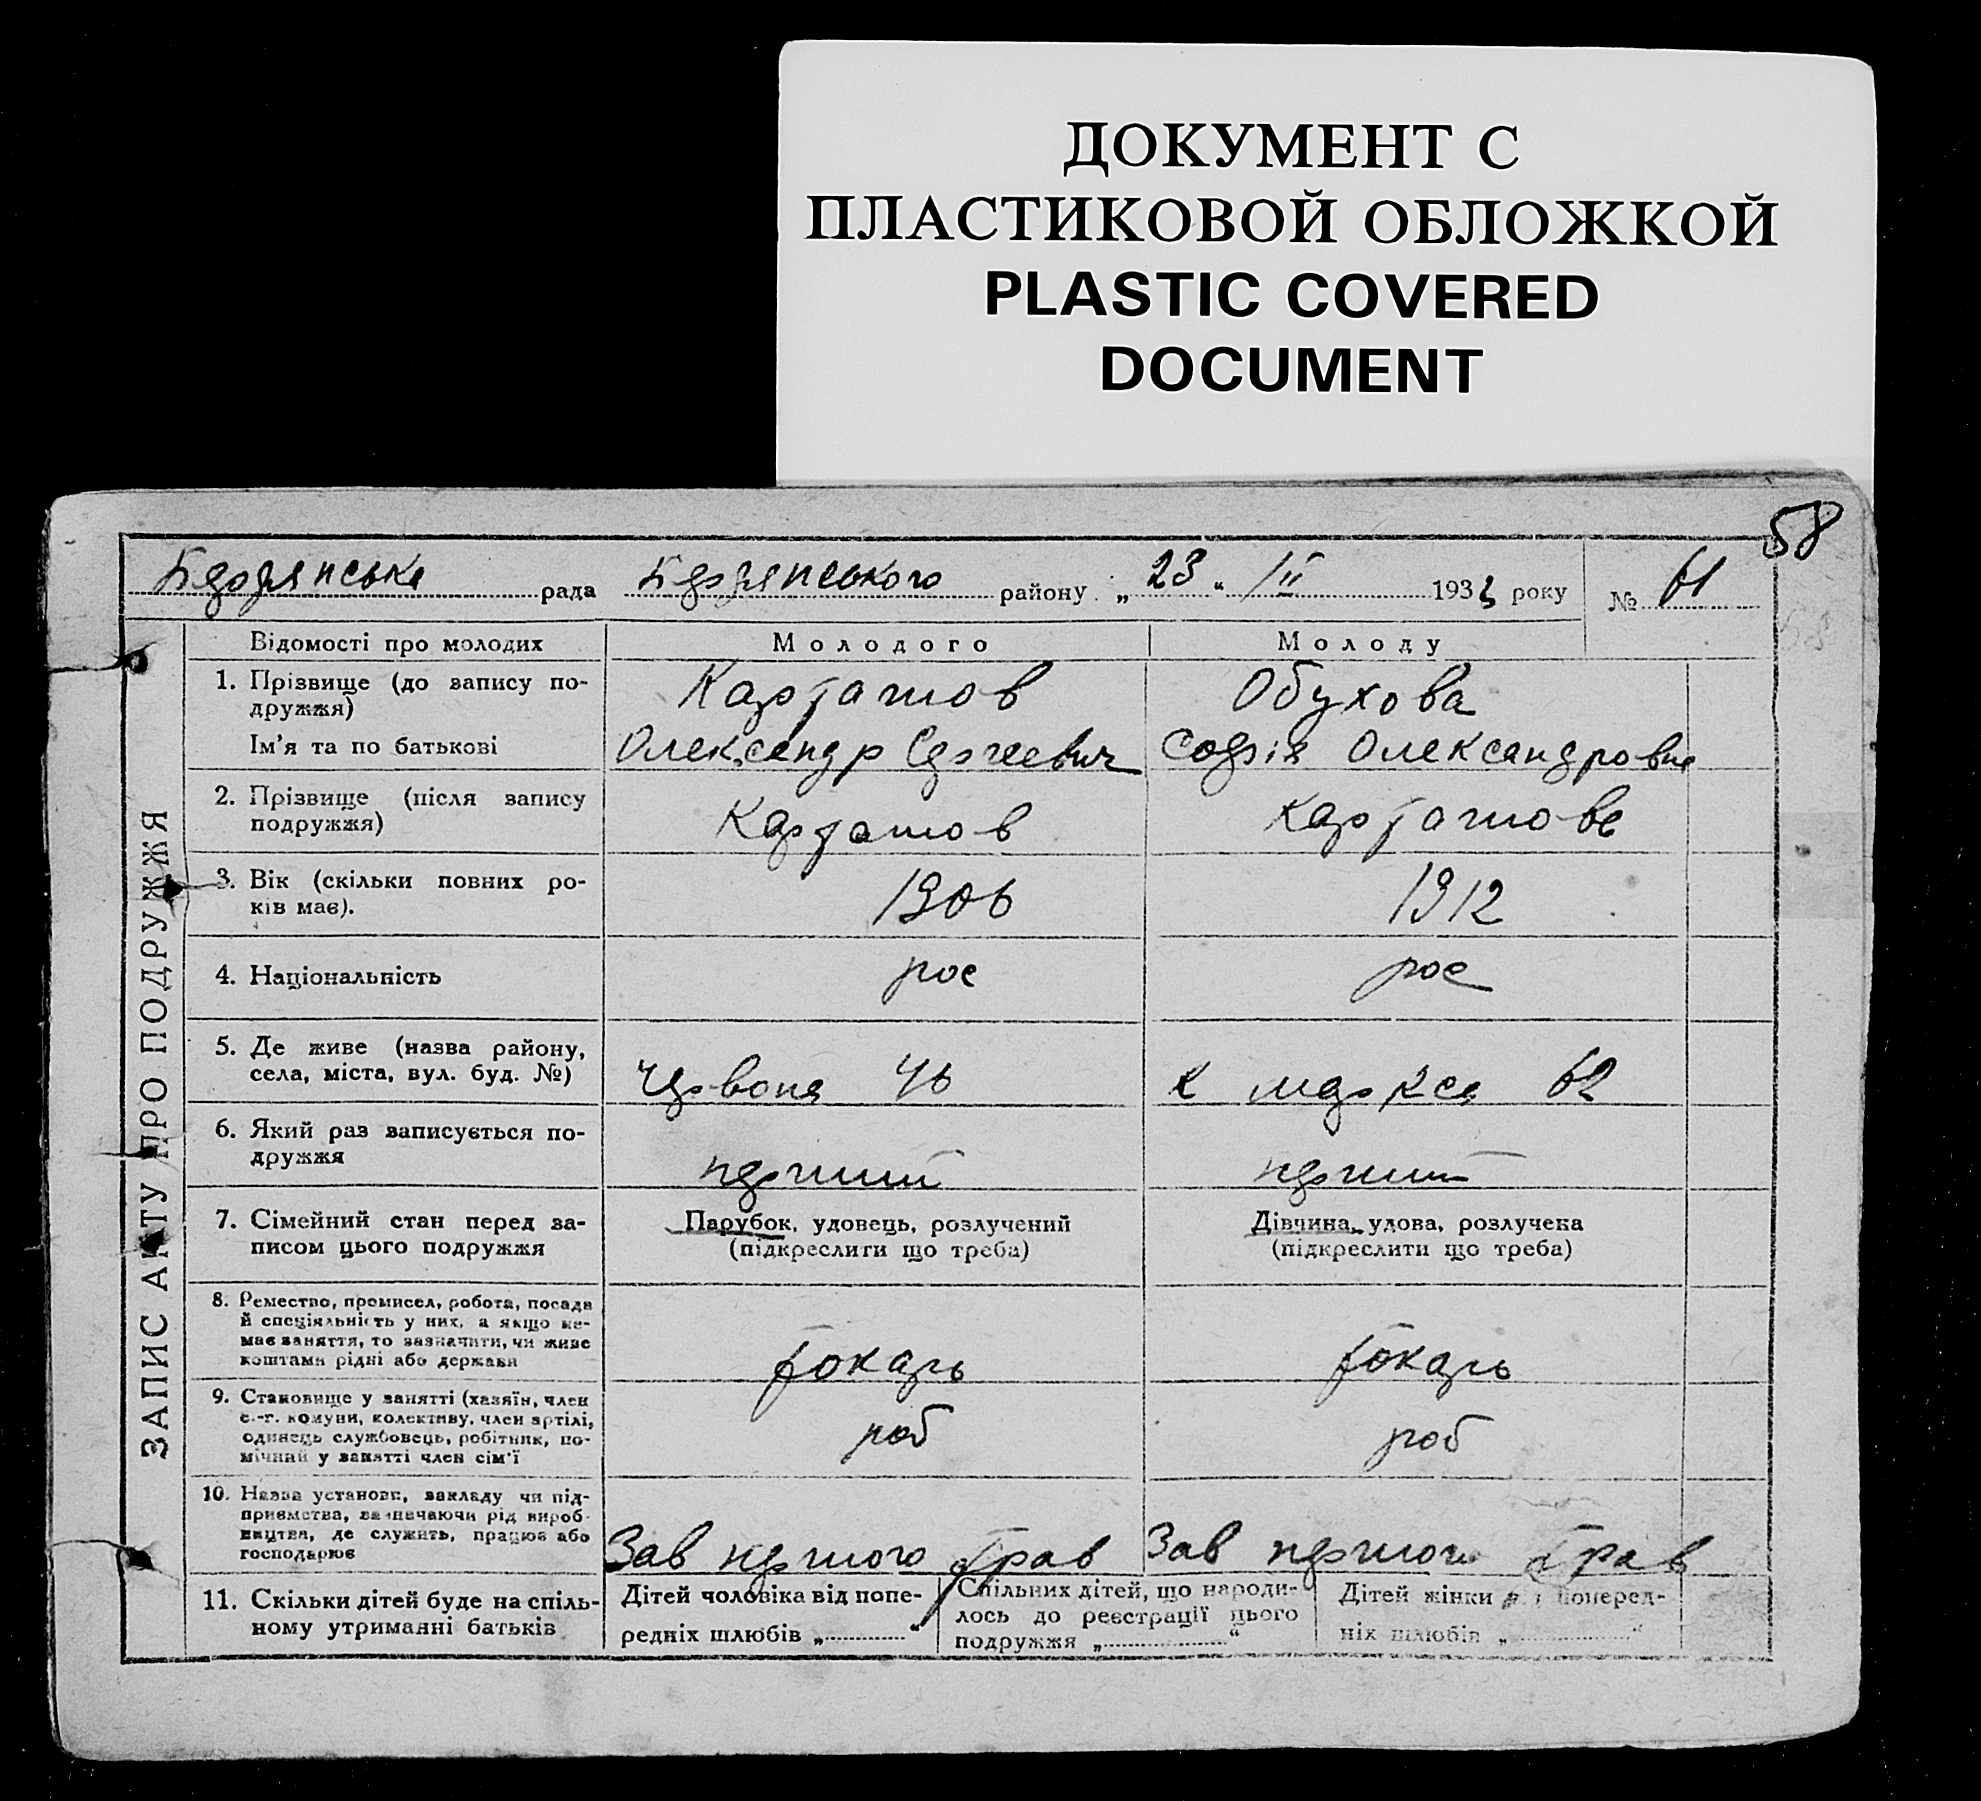 ДОКУМЕНТ С
ПЛАСТИКОВОЙ ОБЛОЖКОЙ
PLASTIC COVERED
DOCUMENT
58
Бердянська рада Бердянського району „23“ III 1933 року № 61
ЗАПИС АКТУ ПРО ПОДРУЖЖЯ
Відомості про молодих Молодого Молоду
1. Прізвище (до запису по-
дружжя) Карташов Обухова
Ім'я та по батькові Олександр Сергеевич Софія Олександровна
2. Прізвище (після запису
подружжя) Карташов Карташова
3. Вік (скільки повних ро-
ків має). 1906 1912
4. Національність рос рос
5. Де живе (назва району,
села, міста, вул. буд. №) Червона 46 К Маркса 62
6. Який раз записується по-
дружжя перший перший
7. Сімейний стан перед за-
писом цього подружжя
Парубок, удовець, розлучений
(підкреслити що треба)
Дівчина, удова, розлучена
(підкреслити що треба)
8. Ремество, промисел, робота, посада
й спеціяльність у них, а якщо не-
має заняття, то зазначити, чи живе
коштами рідні або держави
токарь токарь
9. Становище у занятті (хазяїн, член
с.-г. комуни, колективу, член артілі,
одинець службовець, робітник, по-
мічний у занятті член сім'ї
роб роб
10. Назва установи, закладу чи під-
приємства, зазначаючи рід вироб-
ництва, де служить, працює або
господарює
Зав першого трав Зав першого трав
11. Скільки дітей буде на спіль-
ному утриманні батьків
Дітей чоловіка від попе-
редніх шлюбів „ “
Спільних дітей, що народи-
лось до реєстрації цього
подружжя „ “
Дітей жінки від поперед-
ніх шлюбів „ “